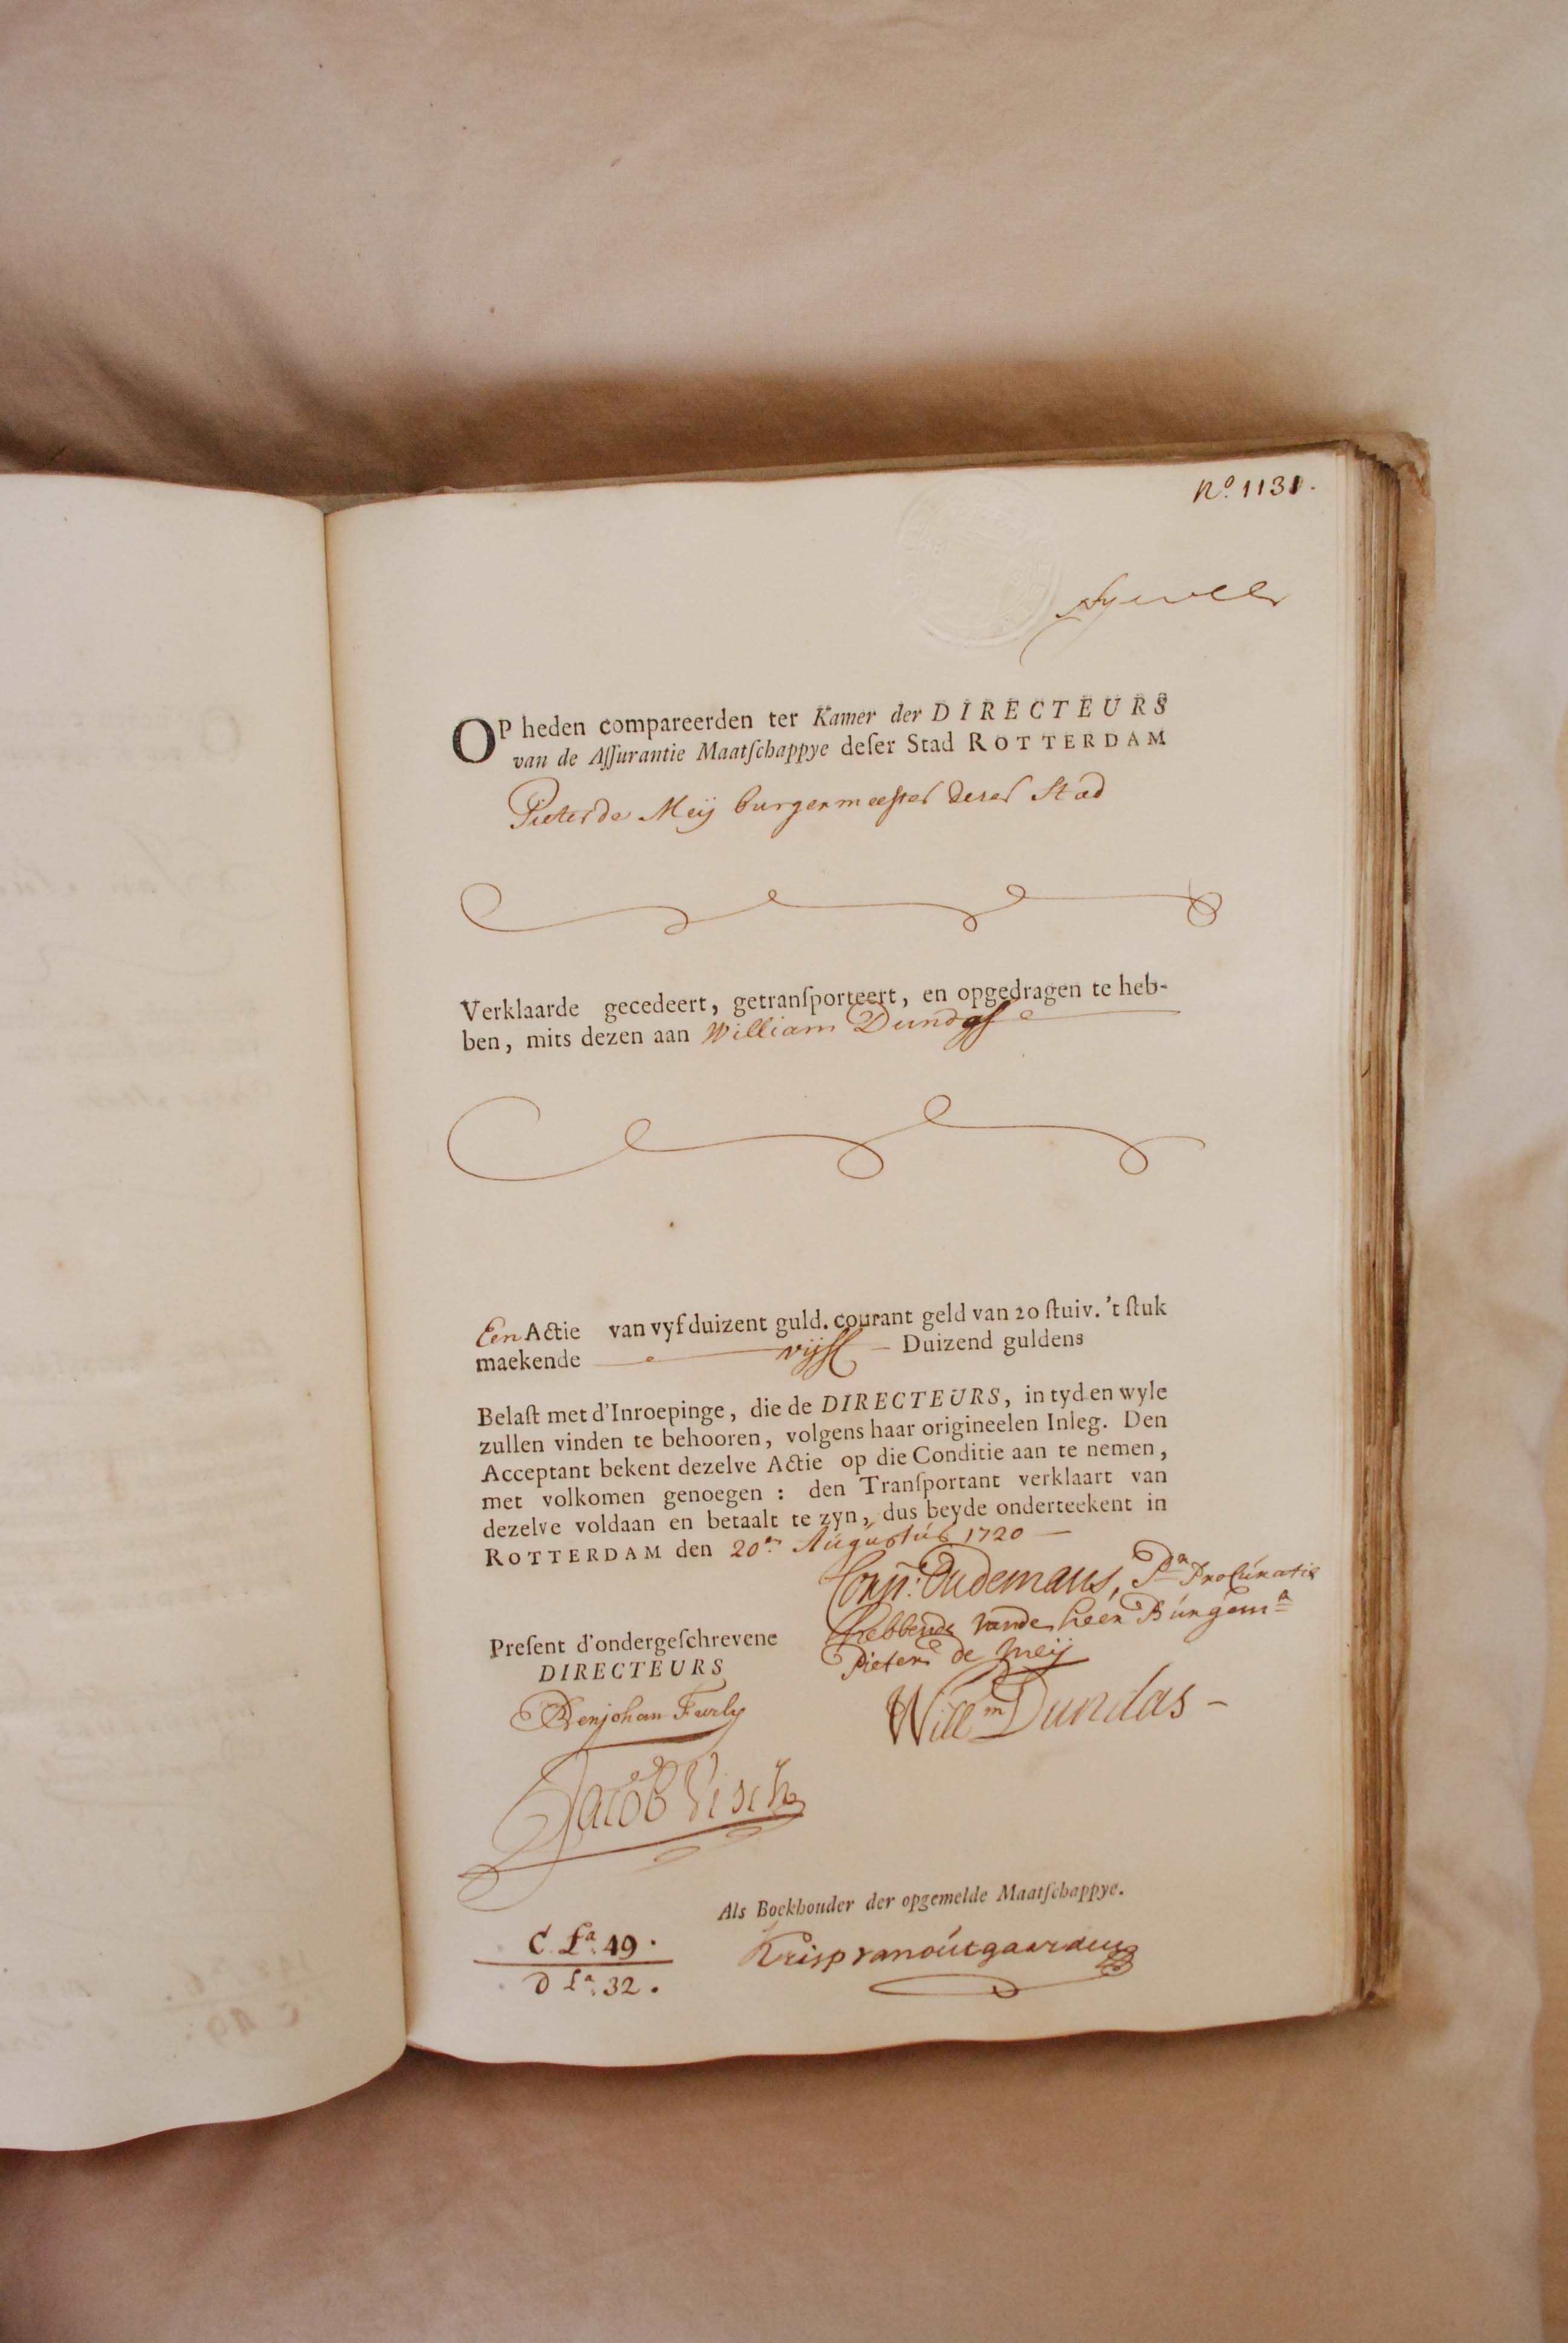 No. 1131.
OP heden compareerden ter Kamer der DIRECTEURS
van de Aſſurantie Maatſchappye deſer Stad ROTTERDAM
Pieter de Meij burgermeester deser Stad
Verklaarde gecedeert, getranſporteert, en opgedragen te heb-
ben, mits dezen aan William Dundas
Een Actie van vyf duizent guld. courant geld van 20 ſtuiv. 't ſtuk
maekende vijff Duizend guldens
Belaſt met d'Inroepinge, die de DIRECTEURS, in tyd en wyle
zullen vinden te behooren, volgens haar origineelen Inleg. Den
Acceptant bekent dezelve Actie op die Conditie aan te nemen,
met volkomen genoegen : den Tranſportant verklaart van
dezelve voldaan en betaalt te zyn, dus beyde onderteekent in
ROTTERDAM den 20en Augustus 1720
Corn: Oudemans, Pr Procuratie
hebbende vande heer Burgemr
Pieter de Meij
Preſent d'ondergeſchrevene
DIRECTEURS
Benjohan Furly
Willm Dundas
Jacob Visch
Als Boekhouder der opgemelde Maatſchappye.
Krisp van outgaarden
C La. 49.
D La. 32.